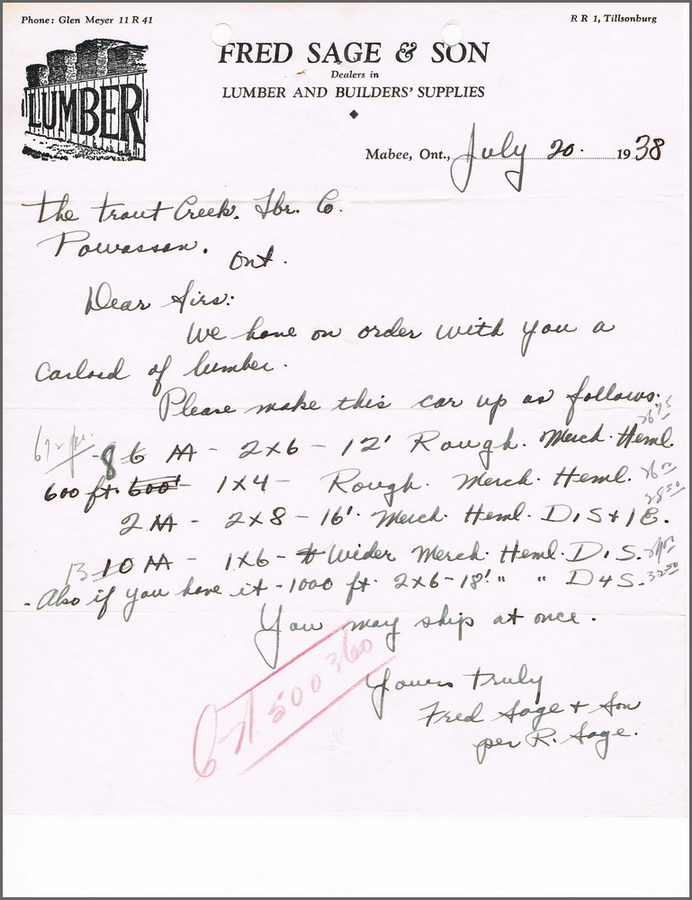 Phone: Glen Meyer 11 R 41
R R 1, Tillsonburg
LUMBER
FRED SAGE & SON
Dealers in
LUMBER AND BUILDERS' SUPPLIES
Mabee, Ont., July 20. 1938
The Trout Creek. Lbr. Co.
Powassan.
Ont.
Dear Sirs:
We have on order with you a
carload of lumber.
Please make this car up as follows:
8 6 M - 2x6 - 12' Rough. Merch. Heml.
600 ft. 600' 1x4 - Rough. Merch. Heml.
2 M - 2x8 - 16'. Merch. Heml. D1S+1E.
13 10 M - 1x6 - & Wider Merch. Heml. D1S.
Also if you have it - 1000 ft. 2x6-18' " " D4S.
You may ship at once.
Yours truly
Fred Sage + Son
per R. Sage.
500360